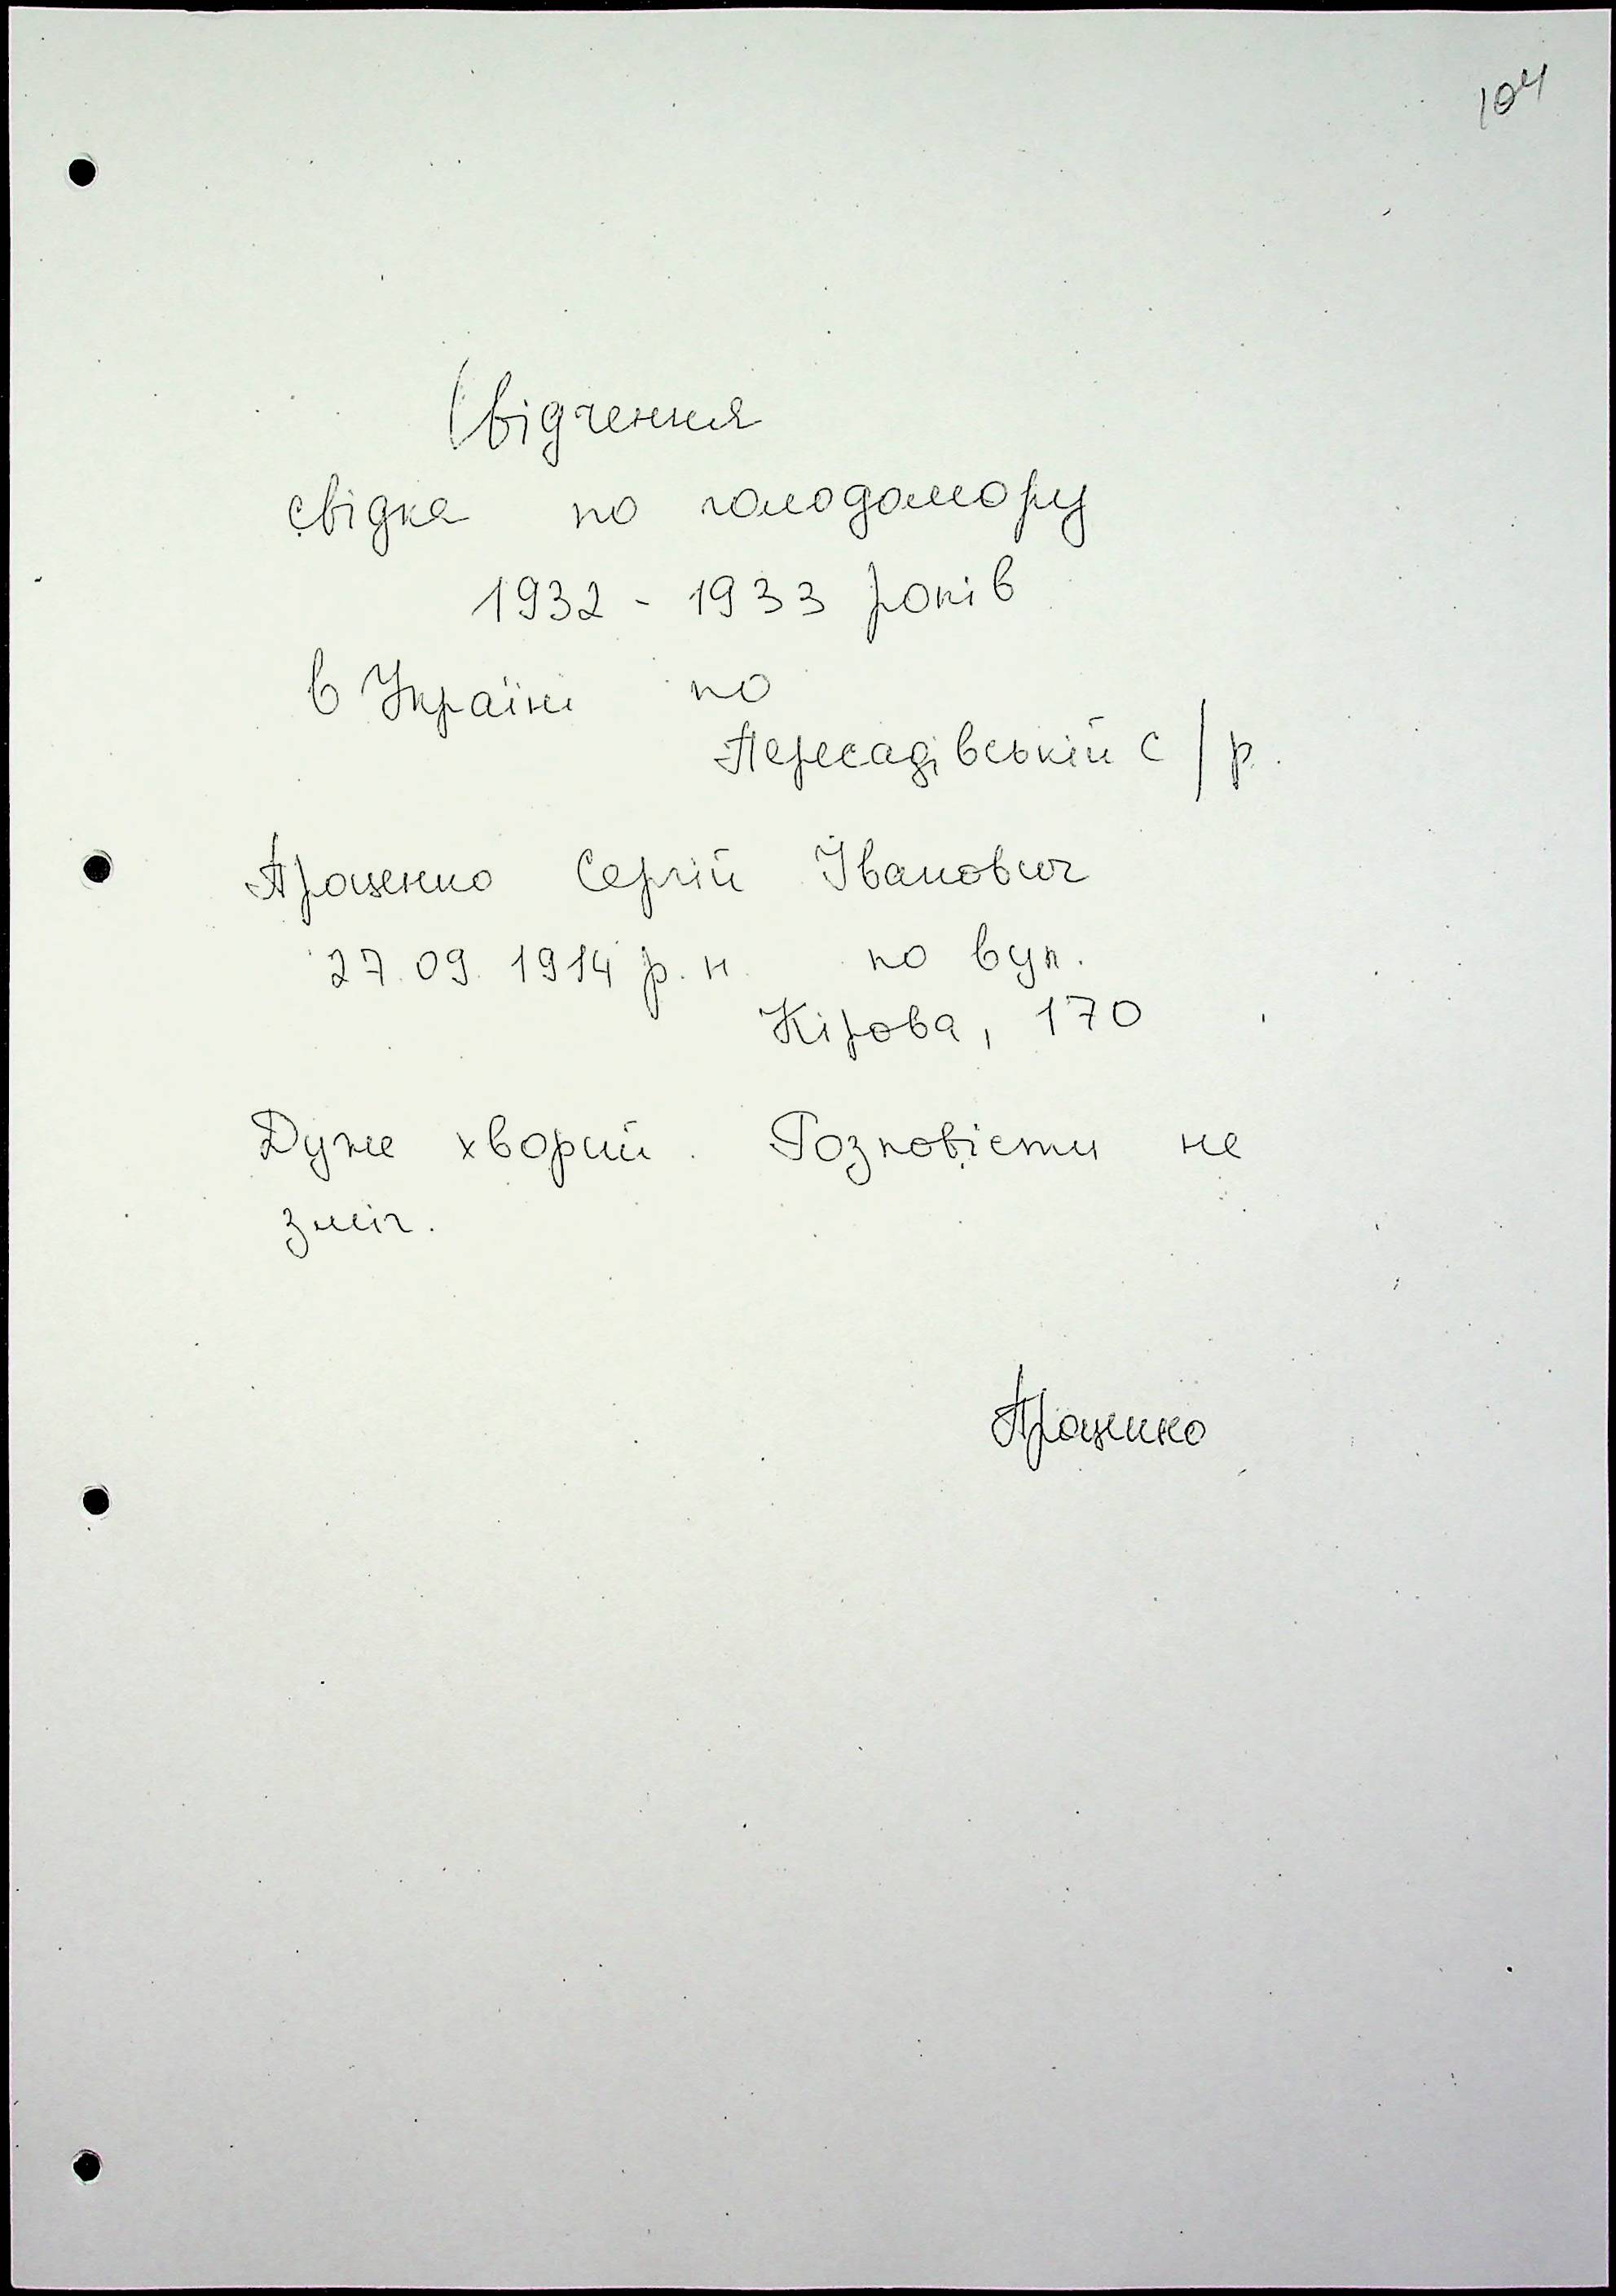 104
Свідчення
свідка по голодомору
1932 - 1933 років
в Україні по
Пересадівській с/р.
Проценко Сергій Іванович
27.09.1914 р.н. по вул.
Кірова, 170
Дуже хворий. Розповісти не
зміг.
Проценко